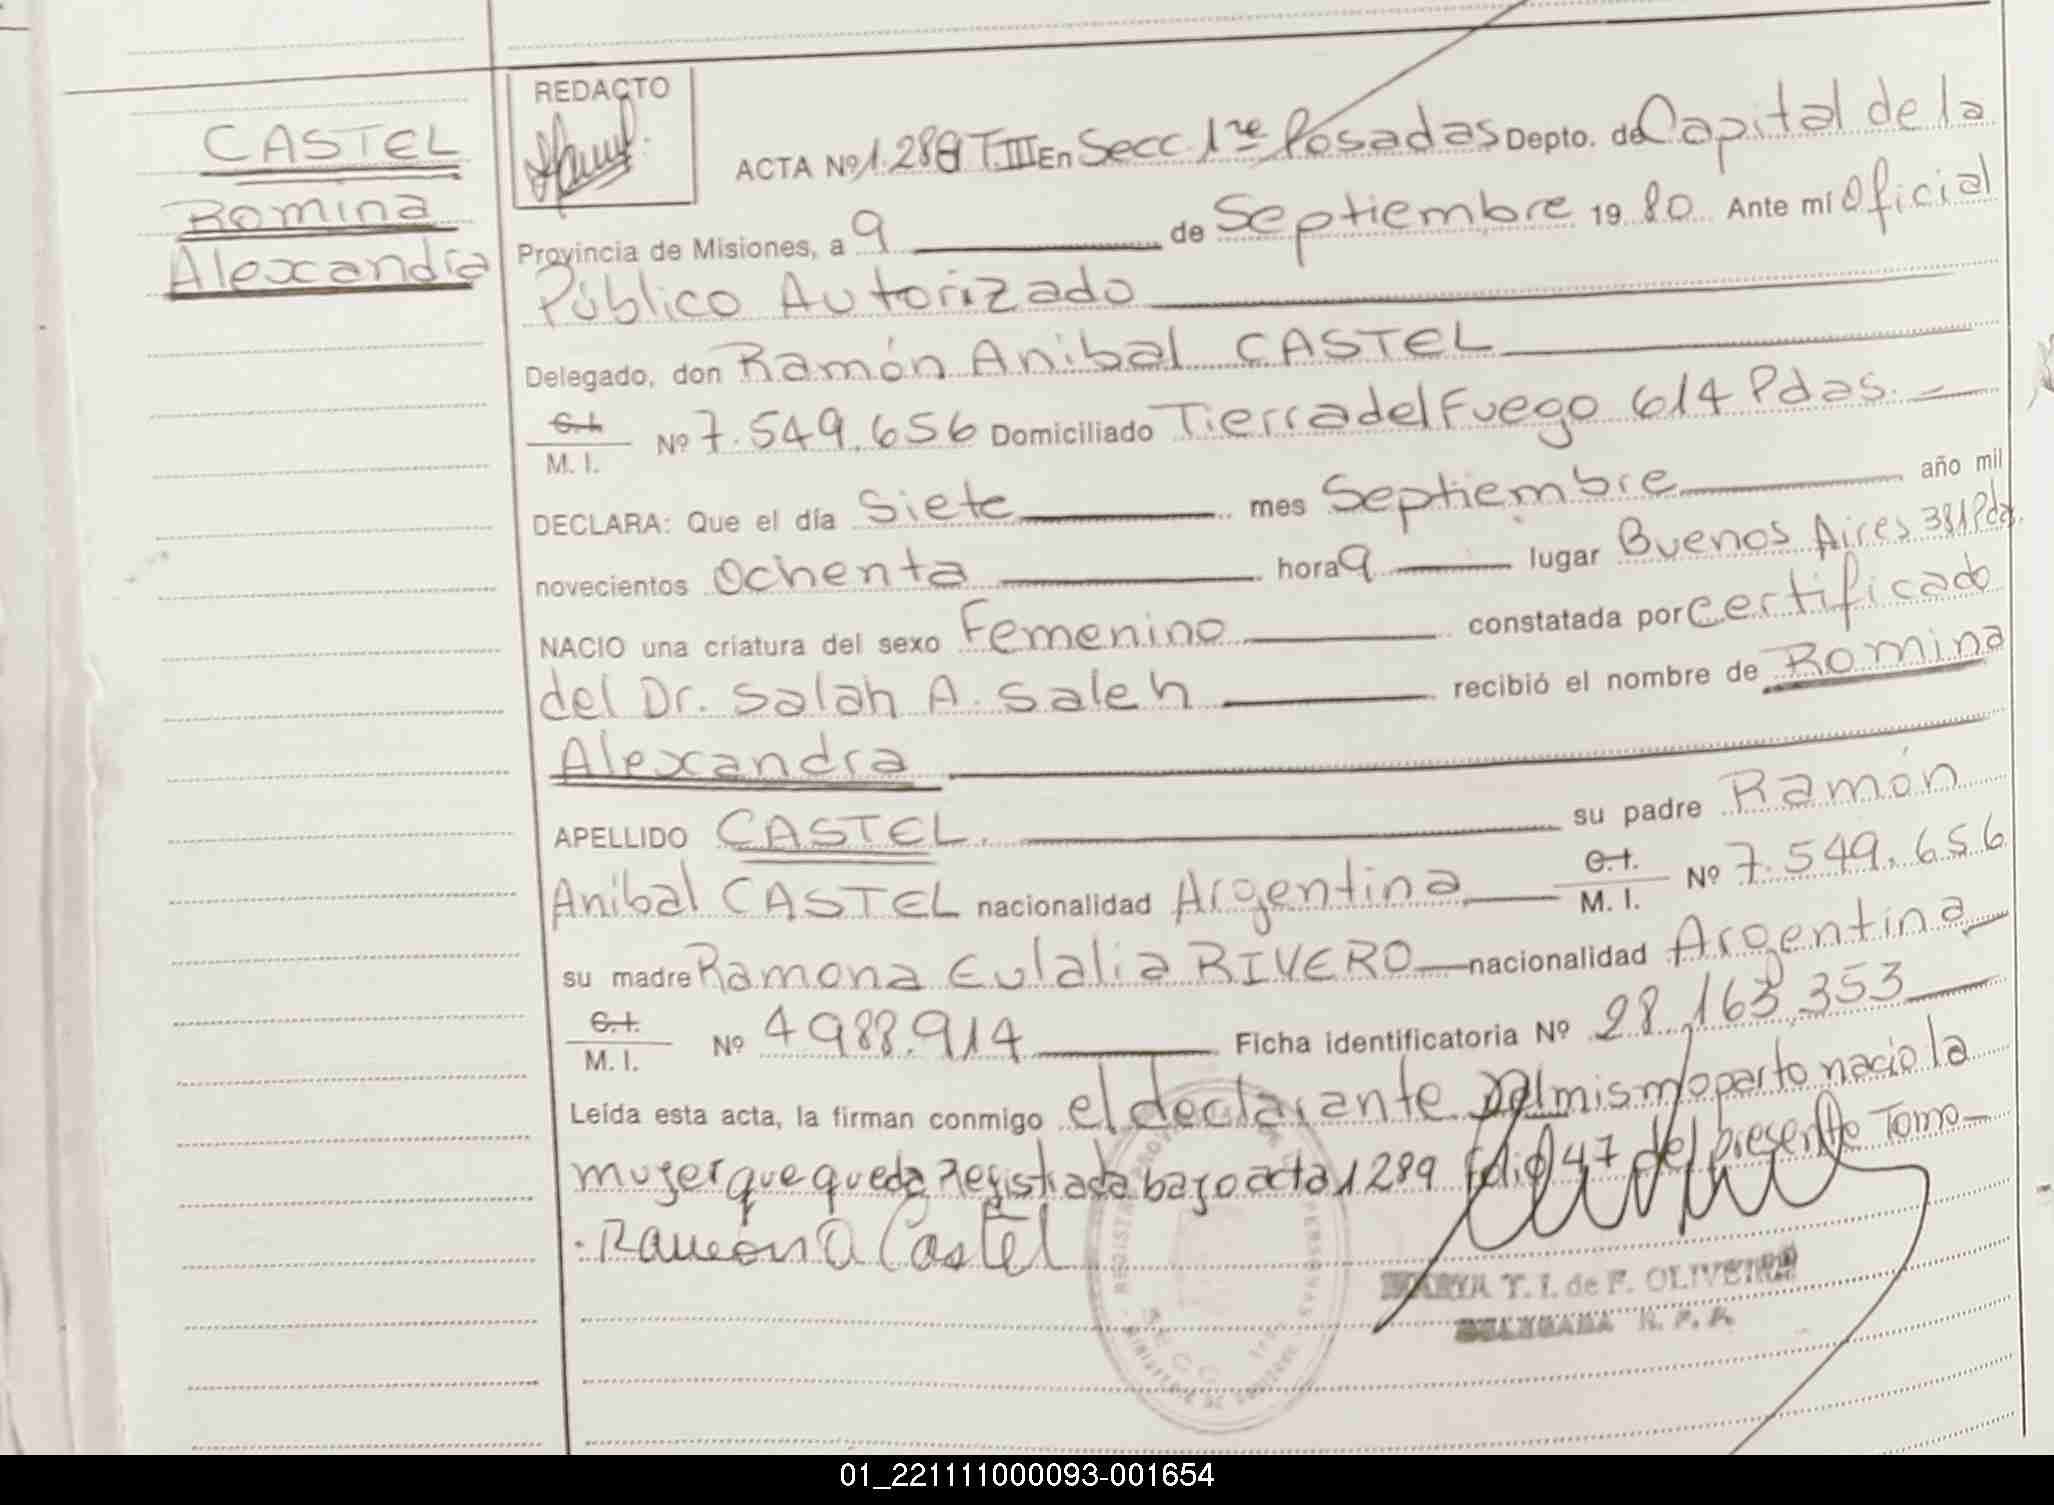 CASTEL
Romina
Alexandra
REDACTO
ACTA Nº 1.288 T.III En Secc 1re Posadas Depto. de Capital de la
Provincia de Misiones, a 9 de Septiembre 1980 Ante mí Oficial
Público Autorizado
Delegado, don Ramón Anibal CASTEL
C.I. M. I. Nº 7.549.656 Domiciliado Tierra del Fuego 614 Pdas.
DECLARA: Que el día Siete mes Septiembre año mil
novecientos Ochenta hora 9 lugar Buenos Aires 381 Pdas.
NACIO una criatura del sexo Femenino constatada por certificado
del Dr. Salah A. Saleh recibió el nombre de Romina
Alexandra
APELLIDO CASTEL. su padre Ramón
Anibal CASTEL nacionalidad Argentina C.I. M. I. Nº 7.549.656
su madre Ramona Eulalia RIVERO nacionalidad Argentina
C.I. M. I. Nº 4988.914 Ficha identificatoria Nº 28.163.353
Leída esta acta, la firman conmigo el declarante Del mismo parto nacio la
mujer que queda Registrada bajo acta 1289 folio 47 del presente Tomo
Ramón A Castel
T. I. de F. OLIVEIRA
DELEGADA R. P. P.
01_221111000093-001654